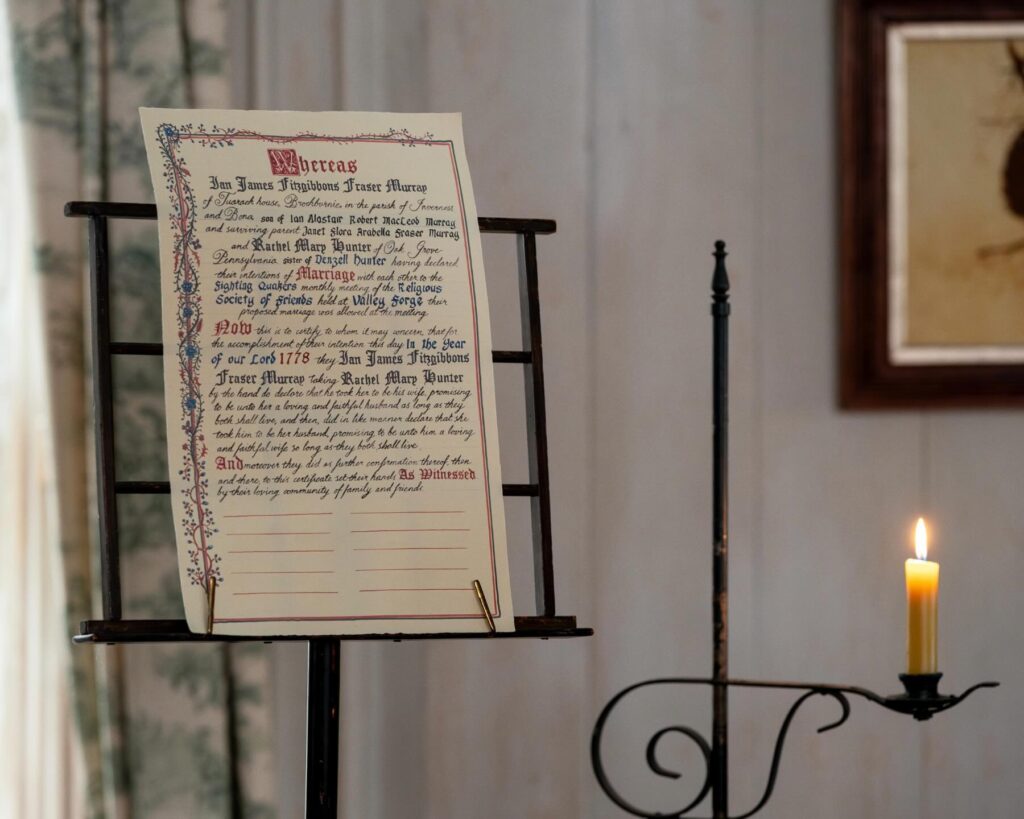 Whereas
Ian James Fitzgibbons Fraser Murray
of Tuarach house, Brochburnie, in the parish of Inverness
and Bona, son of Ian Alastair Robert MacLeod Murray
and surviving parent Janet Flora Arabella Fraser Murray
and Rachel Mary Hunter of Oak Grove
Pennsylvania sister of Denzell Hunter having declared
their intentions of Marriage with each other to the
Fighting Quakers monthly meeting of the Religious
Society of Friends held at Valley Forge their
proposed marriage was allowed at the meeting.
Now this is to certify to whom it may concern, that for
the accomplishment of their intention this day In the Year
of our Lord 1778 they Ian James Fitzgibbons
Fraser Murray taking Rachel Mary Hunter
by the hand do declare that he took her to be his wife, promising
to be unto her a loving and faithful husband as long as they
both shall live, and then, did in like manner declare that she
took him to be her husband, promising to be unto him a loving
and faithful wife so long as they both shall live.
And moreover they did as further confirmation thereof, then
and there, to this certificate set their hands As Witnessed
by their loving community of family and friends.